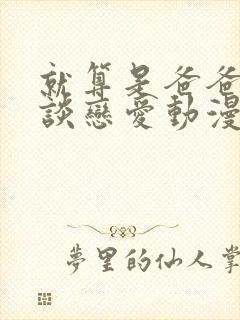 就算是爸爸
談戀愛動漫
夢里的仙人掌